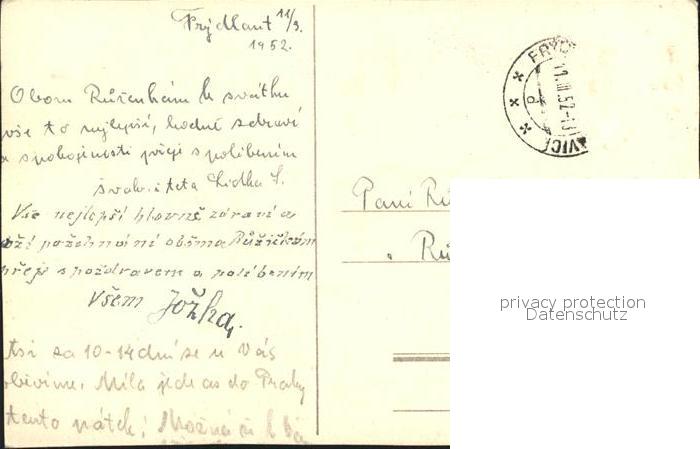 Frýdlant 11/3.
1952.
Oboum Růženkám k svátku
vše to nejlepší, hodně zdraví
a spokojenosti přeji s políbením
švakr. i teta Lidka
Vše nejlepší hlavně zdraví a
boží požehnání oběma Růžičkám
přeje s pozdravem a políbením
všem Jožka.
si za 10-14 dní se u Vás
objevíme. Míla jede as do Prahy
tento pátek! Možná
Paní
FRÝD
11.III.52-13
AVICÍ
privacy protection
Datenschutz